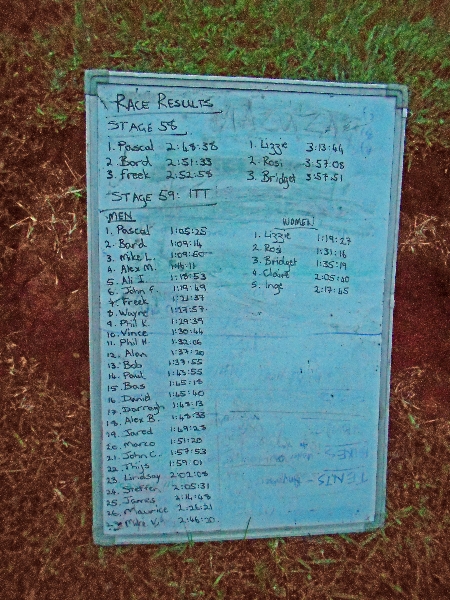 RACE RESULTS
STAGE 58
1. Pascal 2:48:38 1. Lizzie 3:13:44
2. Bard 2:51:33 2. Rosi 3:57:08
3. Freek 2:52:58 3. Bridget 3:57:51
STAGE 59: ITT
MEN
1. Pascal 1:05:25
2. Bard 1:09:14
3. Mike L. 1:09:50
4. Alex M.
5. Ali J. 1:18:53
6. John F. 1:19:49
7. Freek 1:21:37
8. Wayne 1:27:57
9. Phil K. 1:29:39
10. Vince 1:30:44
11. Phil H. 1:32:06
12. Alan 1:37:20
13. Bob 1:37:55
14. Paul 1:43:55
15. Bas 1:45:18
16. David 1:45:40
17. Darragh 1:48:13
18. Alex B. 1:48:33
19. Jared 1:49:23
20. Marco 1:51:20
21. John C. 1:57:53
22. Thijs 1:59:01
23. Lindsay 2:02:08
24. Steffen 2:05:31
25. James 2:14:48
26. Maurice 2:26:21
Mike V. 2:46:20
WOMEN
1. Lizzie 1:19:27
2. Rosi 1:31:16
3. Bridget 1:35:19
4. Claire 2:05:40
5. Inge 2:17:45
BIKES
TENTS -